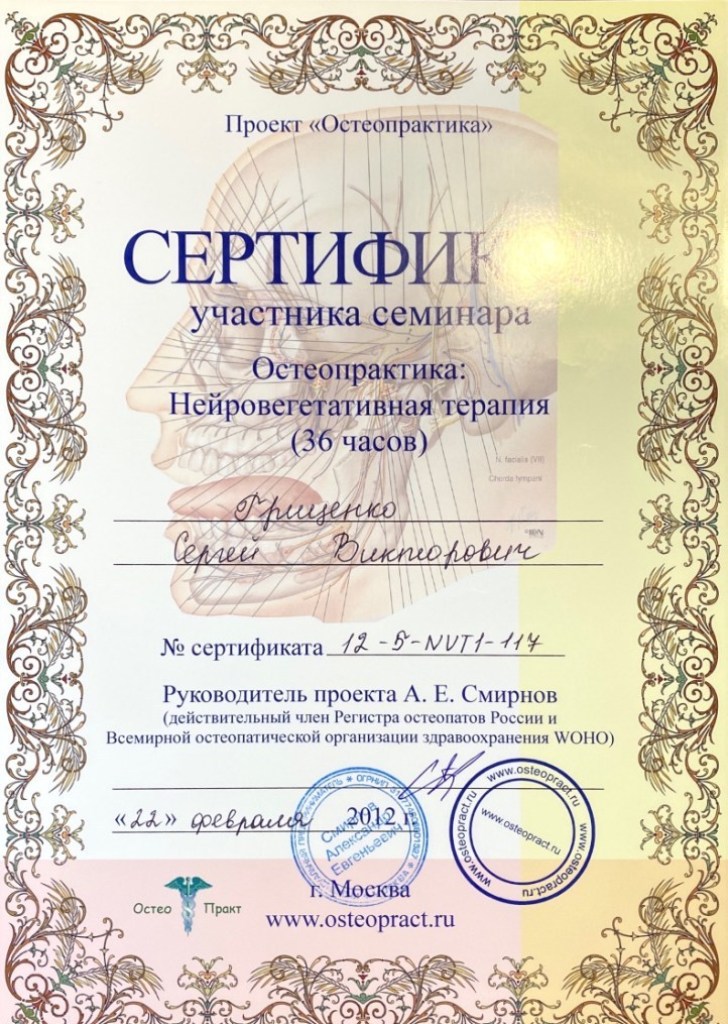 Проект «Остеопрактика»
СЕРТИФИК
участника семинара
Остеопрактика:
Нейровегетативная терапия
(36 часов)
N. facialis (VII)
Chorda tympani
Гриценко
Сергей Викторович
№ сертификата 12-5-NVT1-117
Руководитель проекта А. Е. Смирнов
(действительный член Регистра остеопатов России и
Всемирной остеопатической организации здравоохранения WOHO)
«22» февраля 2012 г.
Смирнов
Александр
Евгеньевич
www.osteopract.ru
www.osteopract.ru
www.osteopract.ru
www.osteopract.ru
Остео Практ
г. Москва
www.osteopract.ru